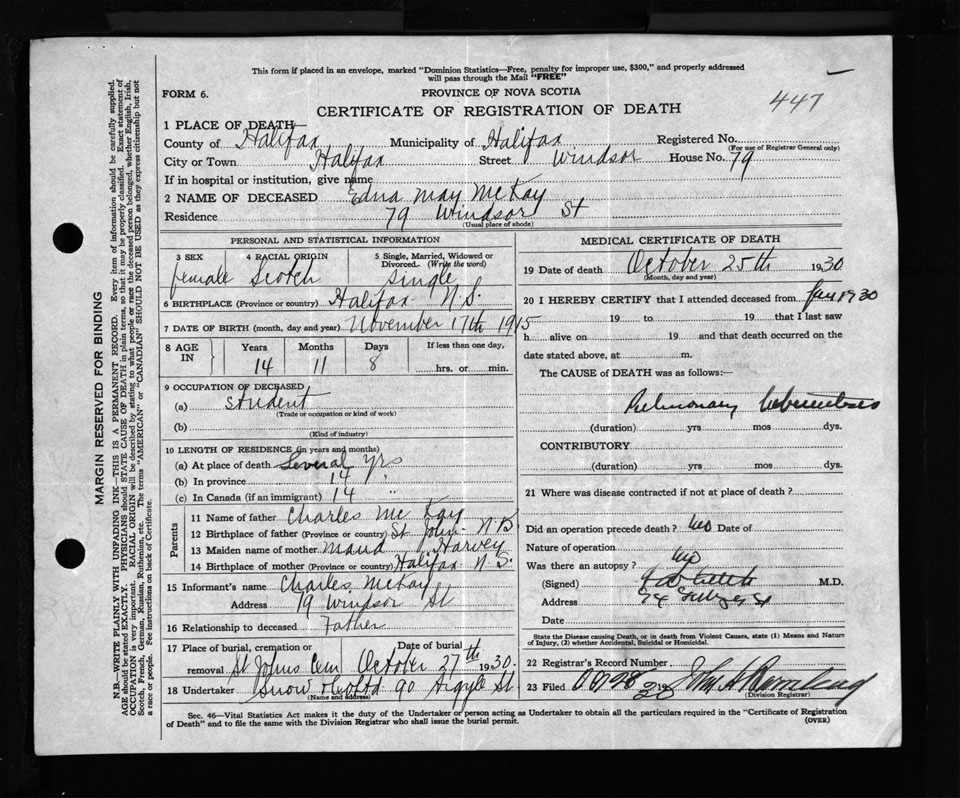 This form if placed in an envelope, marked "Dominion Statistics—Free, penalty for improper use, $300," and properly addressed
will pass through the Mail "FREE"
FORM 6.
PROVINCE OF NOVA SCOTIA
447
CERTIFICATE OF REGISTRATION OF DEATH
1 PLACE OF DEATH
County of Halifax Municipality of Halifax Registered No.
(For use of Registrar General only)
City or Town Halifax Street Windsor House No. 79
If in hospital or institution, give name
2 NAME OF DECEASED Edna May McKay
Residence 79 Windsor St
(Usual place of abode)
PERSONAL AND STATISTICAL INFORMATION
3 SEX 4 RACIAL ORIGIN 5 Single, Married, Widowed or
Divorced. (Write the word)
female Scotch Single
6 BIRTHPLACE (Province or country) Halifax N.S.
7 DATE OF BIRTH (month, day and year) November 17th 1915
8 AGE IN Years Months Days If less than one day,
14 11 8 hrs. or min.
9 OCCUPATION OF DECEASED
(a) Student
(Trade or occupation or kind of work)
(b)
(Kind of industry)
10 LENGTH OF RESIDENCE (in years and months)
(a) At place of death Several yrs
(b) In province 14 "
(c) In Canada (if an immigrant) 14 "
Parents
11 Name of father Charles Mc Kay
12 Birthplace of father (Province or country) St John N B
13 Maiden name of mother Maud Harvey
14 Birthplace of mother (Province or country) Halifax N.S.
15 Informant's name Charles McKay
Address 79 Windsor St
16 Relationship to deceased Father
17 Place of burial, cremation or Date of burial
removal St Johns Cem October 27th 1930.
18 Undertaker Snow & Co Ltd 90 Argyle St
(Name and address)
MEDICAL CERTIFICATE OF DEATH
19 Date of death October 25th 1930
(Month, day and year)
20 I HEREBY CERTIFY that I attended deceased from 1930
19 to 19 that I last saw
h alive on 19 and that death occurred on the
date stated above, at m.
The CAUSE of DEATH was as follows:—
Pulmonary tuberculosis
(duration) yrs mos dys.
CONTRIBUTORY
(duration) yrs mos dys.
21 Where was disease contracted if not at place of death?
Did an operation precede death? no Date of
Nature of operation
Was there an autopsy? no
(Signed) M.D.
Address
Date
State the Disease causing Death, or in death from Violent Causes, state (1) Means and Nature
of Injury, (2) whether Accidental, Suicidal or Homicidal.
22 Registrar's Record Number
23 Filed Oct 28
(Division Registrar)
Sec. 46—Vital Statistics Act makes it the duty of the Undertaker or person acting as Undertaker to obtain all the particulars required in the "Certificate of Registration
of Death" and to file the same with the Division Registrar who shall issue the burial permit. (OVER)
MARGIN RESERVED FOR BINDING
N.B.—WRITE PLAINLY WITH UNFADING INK—THIS IS A PERMANENT RECORD. Every item of information should be carefully supplied.
AGE should be stated EXACTLY. PHYSICIANS should STATE CAUSE OF DEATH in plain terms, so that it may be properly classified. Exact statement of
OCCUPATION is very important. RACIAL ORIGIN will be described by stating to what people or race the deceased person belonged, whether English, Irish,
Scotch, French, German, Russian, Ruthenian, etc. The terms "AMERICAN" or "CANADIAN" SHOULD NOT BE USED as they express citizenship but not
a race or people. See instructions on back of Certificate.